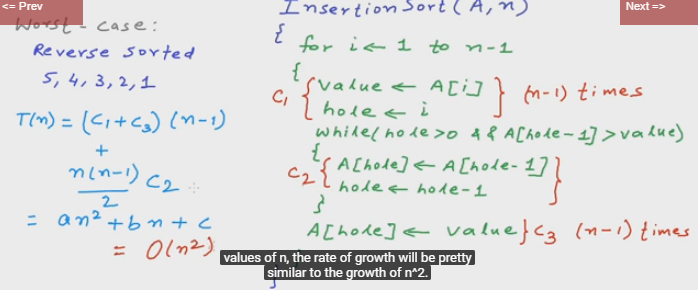 <= Prev
Next =>
Worst-case:
Reverse sorted
5, 4, 3, 2, 1
T(n) = (C₁+C₃) (n-1)
+
n(n-1)/2 C₂
= an² + bn + c
= O(n²)
InsertionSort(A, n)
{
for i ← 1 to n-1
{
C₁ { value ← A[i] } (n-1) times
hole ← i
while(hole > 0 && A[hole-1] > value)
{
C₂ { A[hole] ← A[hole-1] }
hole ← hole-1
}
A[hole] ← value } C₃ (n-1) times
values of n, the rate of growth will be pretty
similar to the growth of n^2.